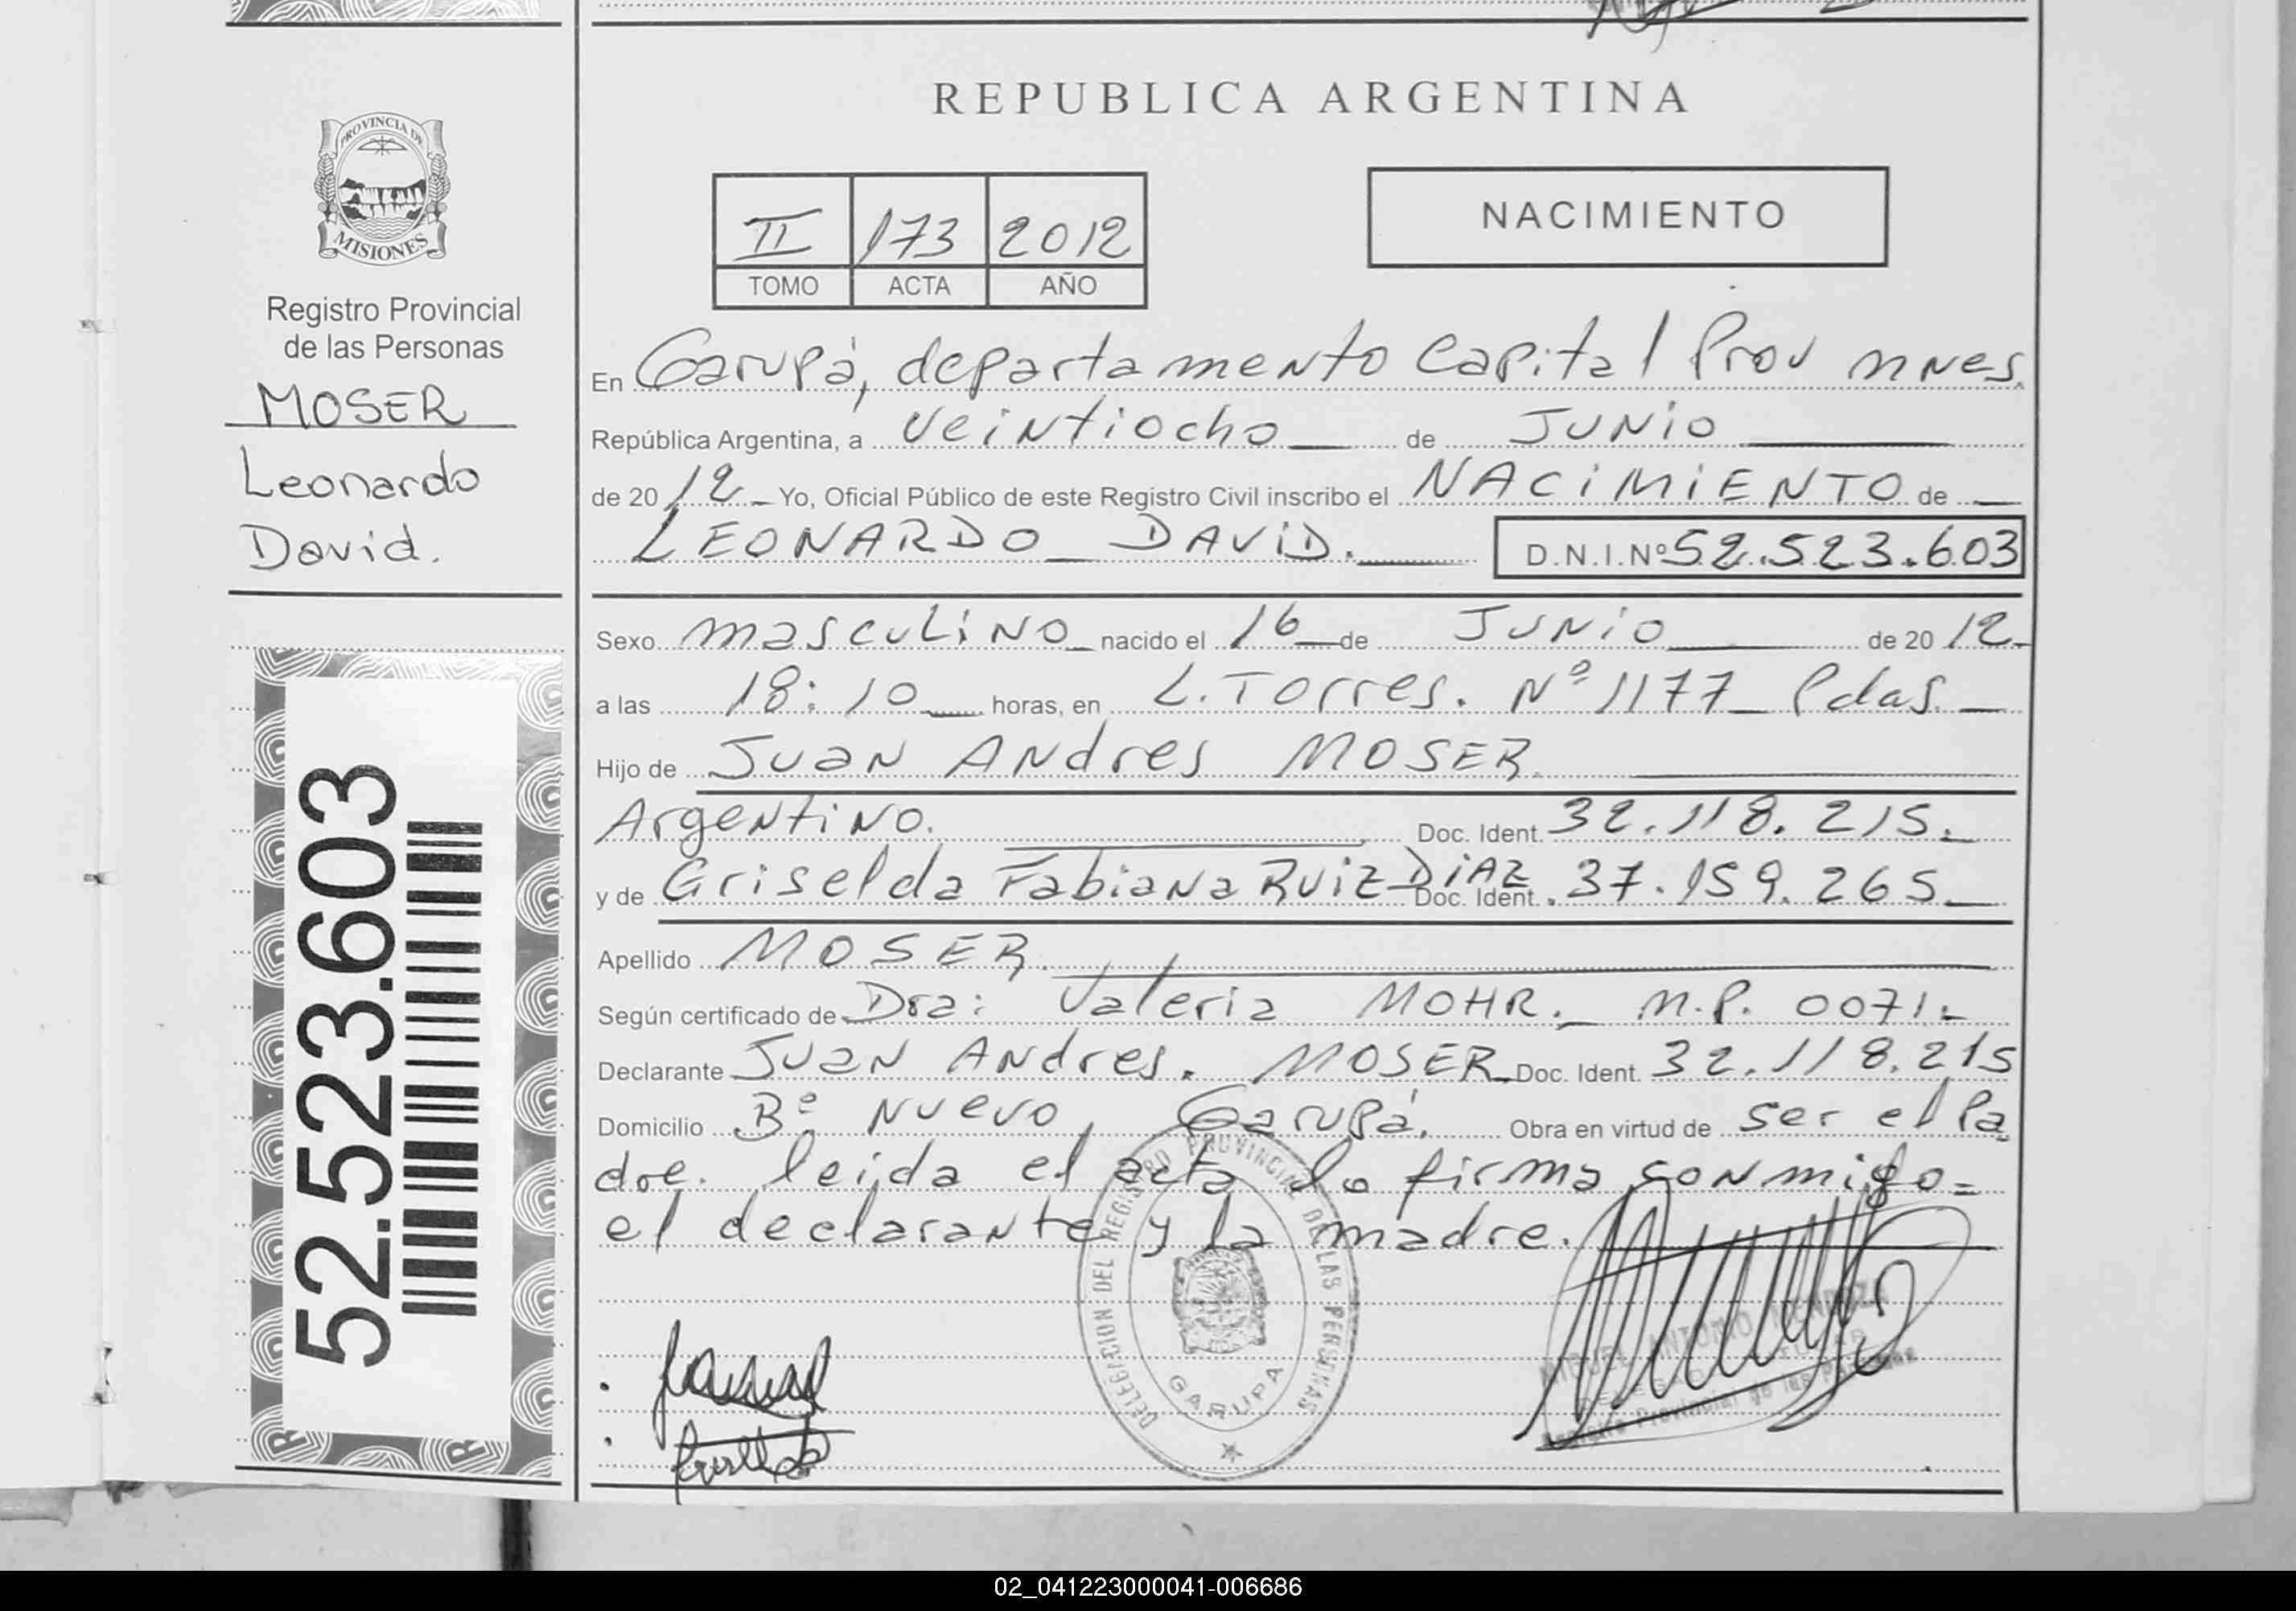 REPUBLICA ARGENTINA
PROVINCIA DE
MISIONES
Registro Provincial
de las Personas
MOSER
Leonardo
David.
52.523.603
II 173 2012
TOMO ACTA AÑO
NACIMIENTO
En Garupá, departamento Capital Prov mnes.
República Argentina, a veintiocho de JUNiO
de 20 12 Yo, Oficial Público de este Registro Civil inscribo el NACiMiENTO de
LEONARDO DAViD.
D.N.I.Nº 52.523.603
Sexo masculiNO nacido el 16 de JUNiO de 20 12
a las 18:10 horas, en L. Torres. Nº 1177 Pdas.
Hijo de JuaN ANdres MOSER.
ArgeNtiNO. Doc. Ident. 32.118.215.
y de Griselda FabiaNa RUiZ DiAZ Doc. Ident. 37.159.265
Apellido MOSER.
Según certificado de Dra: Valeria MOHR. M.P. 0071
Declarante JuaN ANdres. MOSER Doc. Ident. 32.118.215
Domicilio Bº Nuevo, Garupá. Obra en virtud de ser el Pa
dre. leida el acta la firma coNmigo
el declaraNte y la madre.
DELEGACION DEL REGISTRO PROVINCIAL DE LAS PERSONAS
GARUPA
MIGUEL ANTONIO MENDOZA
Registro Provincial de las Personas
02_041223000041-006686